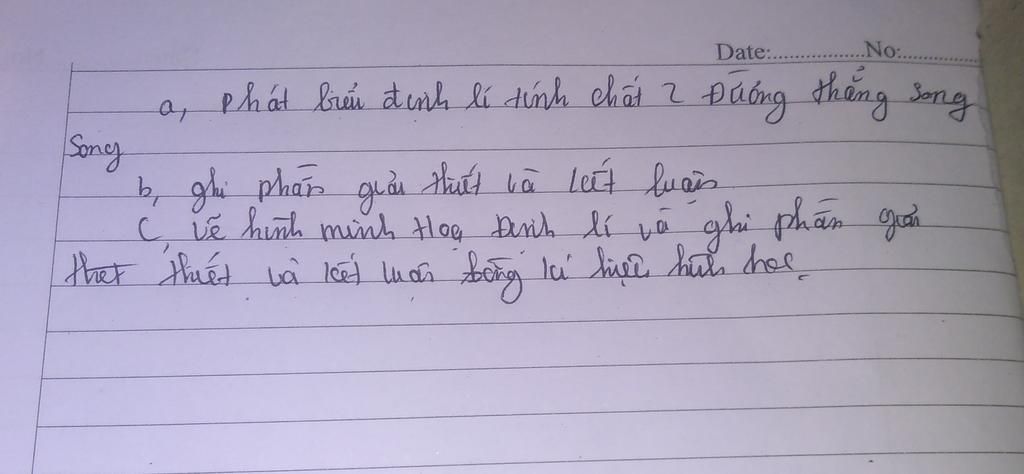 Date:.................No:................
a, phát biểu định lí tính chất 2 Đường thẳng song
song
b, ghi phần giải thiết và kết luận
C, vẽ hình minh Hoạ Định lí và ghi phần giải
thiết thiết và kết luận bằng kí hiệu hình học.